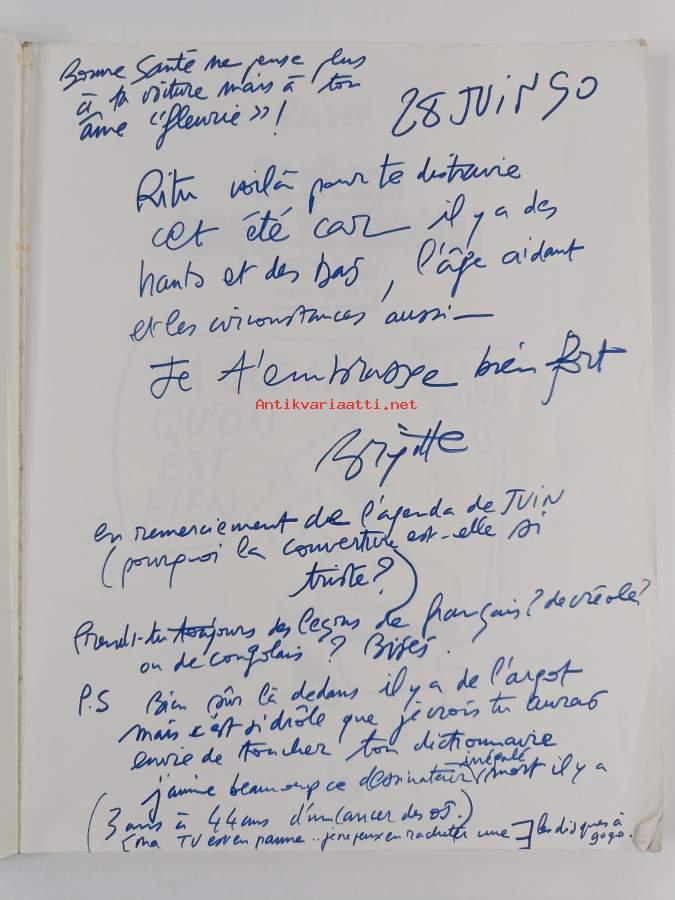 Bonne Santé ne pense plus
à ta voiture mais à ton
âme "fleurie" !
28 JUIN 90
Rita voilà pour te distraire
cet été car il y a des
hauts et des bas, l'âge aidant
et les circonstances aussi —
Je t'embrasse bien fort
Antikvariaatti.net
Brigitte
QU'ON
EST
BIEN
en remerciement de l'agenda de JUIN
(pourquoi la couverture est-elle si
triste ?)
Prends-tu toujours des leçons de français ? de créole ?
ou de congolais ? Bises.
P.S Bien sûr là dedans il y a de l'argot
mais c'est si drôle que je crois tu auras
envie de toucher ton dictionnaire
j'aime beaucoup ce dessinateur inégalé mort il y a
(3 ans à 44 ans d'un cancer des os.)
[ma TV est en panne .. je ne peux en racheter une] les disques à
gogo.